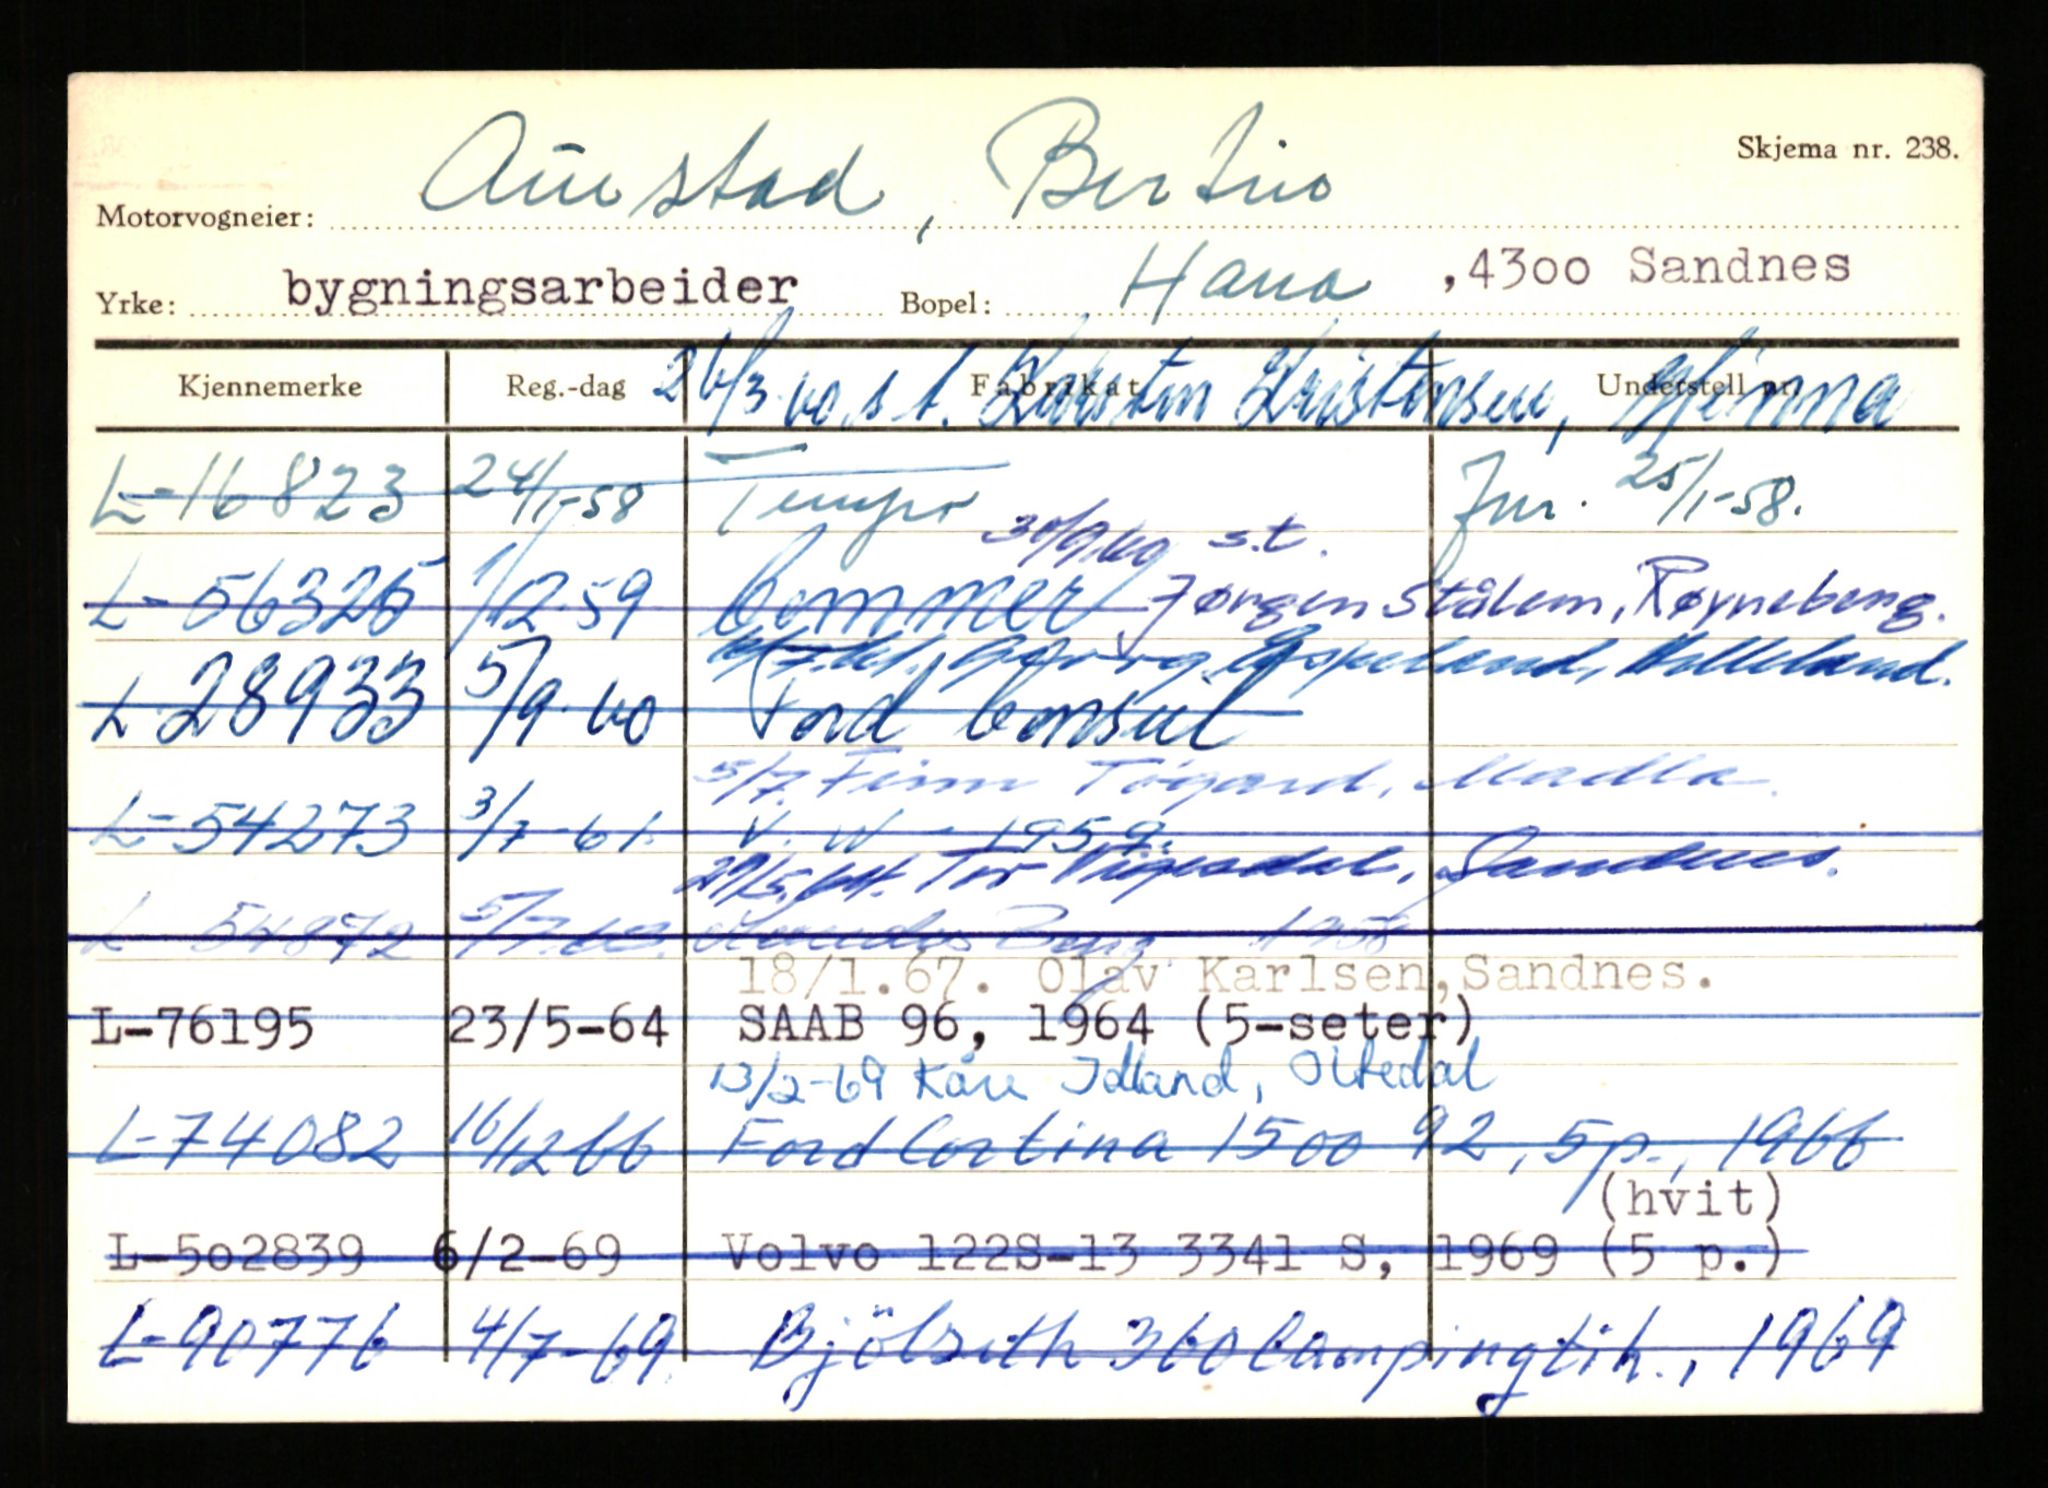 Skjema nr. 238.
Motorvogneier: Austad, Bertino
Yrke: bygningsarbeider Bopel: Hana ,4300 Sandnes
Kjennemerke Reg.-dag Fabrikat Understell nr.
26/3.60 s.t. Karsten Kristensen, Hinna
L-16823 24/1-58 Tempo Jnr. 25/1-58.
30/9.60 s.t.
L-56325 1/12-59 Commer Jørgen Stålem, Røyneberg.
Georg Espeland, Helleland.
L-28933 5/9.60 Ford Consul
5/7. Finn Tøgard, Madla.
L-54273 3/7-61. V.W - 1959.
29/5.64. Tor Sandnes.
L-54872 5/7.63. Mercedes Benz 1958
18/1.67. Olav Karlsen, Sandnes.
L-76195 23/5-64 SAAB 96, 1964 (5-seter)
13/2-69 Kåre Idland, Oltedal
L-74082 16/12 66 Ford Cortina 1500 92, 5 p., 1966
(hvit)
L-502839 6/2-69 Volvo 122S-13 3341 S, 1969 (5 p.)
L-90776 4/7-69. Bjölseth 360 Campingtilh., 1969